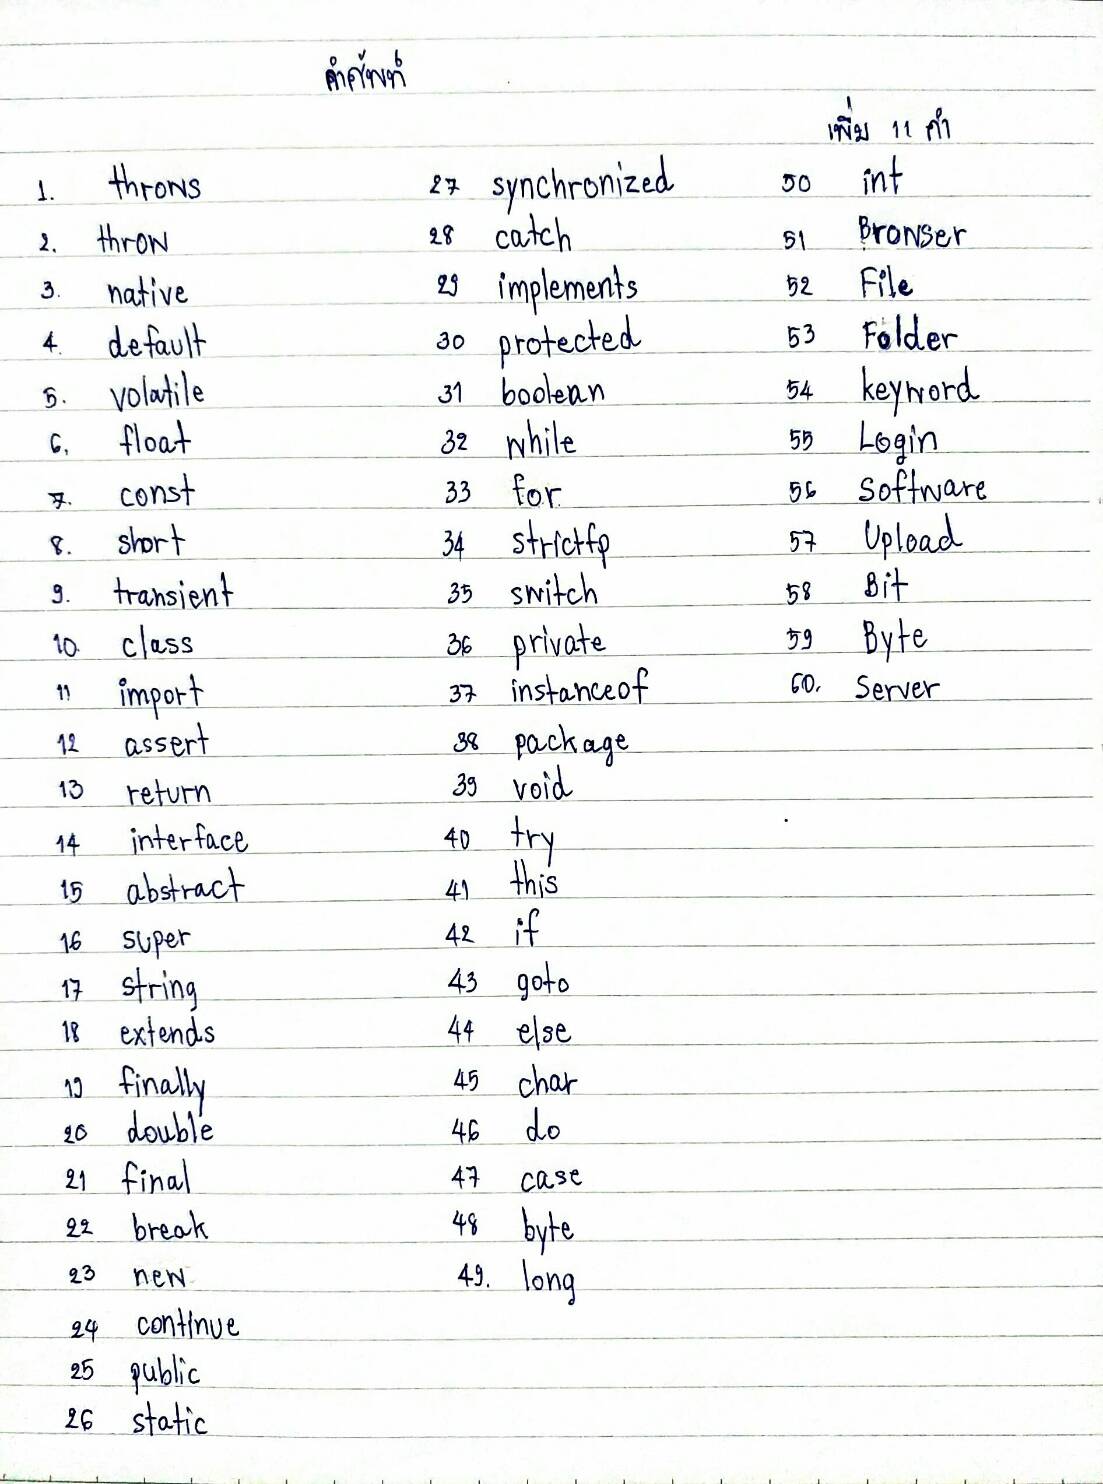 คำศัพท์
เพิ่ม 11 คำ
1. throws
2. throw
3. native
4. default
5. volatile
6. float
7. const
8. short
9. transient
10. class
11 import
12 assert
13 return
14 interface
15 abstract
16 super
17 string
18 extends
19 finally
20 double
21 final
22 break
23 new
24 continue
25 public
26 static
27 synchronized
28 catch
29 implements
30 protected
31 boolean
32 while
33 for
34 strictfp
35 switch
36 private
37 instanceof
38 package
39 void
40 try
41 this
42 if
43 goto
44 else
45 char
46 do
47 case
48 byte
49. long
50 int
51 Browser
52 File
53 Folder
54 keyword
55 Login
56 Software
57 Upload
58 Bit
59 Byte
60. Server